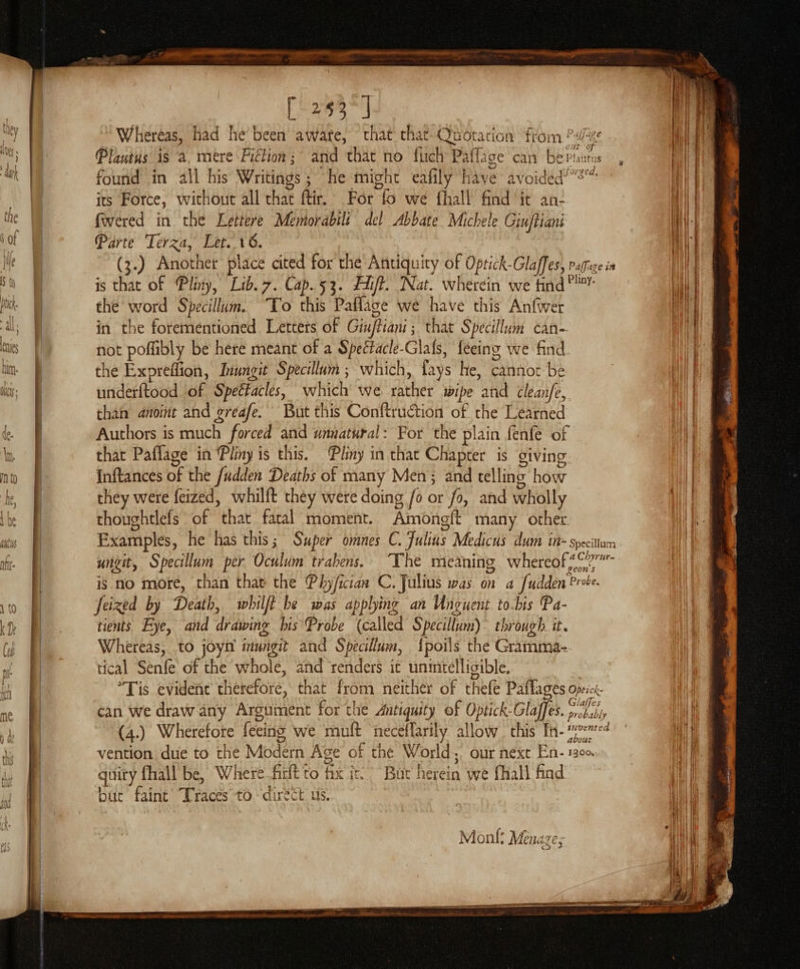 [ 253 ]
Whereas, had he been aware, that that Quotation from Passage
Plautus is a mere Fiction; and that no such Passage can be out of Plautus
found in all his Writings; he might easily have avoided forged.
its Force, without all that stir. For so we shall find it an-
swered in the Lettere Memorabili del Abbate Michele Giustiani
Parte Terza, Let. 16.
(3.) Another place cited for the Antiquity of Optick-Glasses, Passage in
is that of Pliny, Lib. 7. Cap. 53. Hist. Nat. wherein we find Pliny.
the word Specillum. To this Passage we have this Answer
in the forementioned Letters of Giustiani; that Specillum can-
not possibly be here meant of a Spectacle-Glass, seeing we find
the Expression, Inungit Specillum; which, says he, cannot be
understood of Spectacles, which we rather wipe and cleanse,
than anoint and grease. But this Construction of the Learned
Authors is much forced and unnatural: For the plain sense of
that Passage in Pliny is this. Pliny in that Chapter is giving
Instances of the sudden Deaths of many Men; and telling how
they were seized, whilst they were doing so or so, and wholly
thoughtless of that fatal moment. Amongst many other
Examples, he has this; Super omnes C. Julius Medicus dum in- Specillum
ungit, Specillum per Oculum trahens. The meaning whereof a Chyrur-
is no more, than that the Physician C. Julius was on a sudden geon's Probe.
seized by Death, whilst he was applying an Unguent to his Pa-
tients Eye, and drawing his Probe (called Specillum) through it.
Whereas, to joyn inungit and Specillum, spoils the Gramma-
tical Sense of the whole, and renders it unintelligible.
'Tis evident therefore, that from neither of these Passages Optick-
can we draw any Argument for the Antiquity of Optick-Glasses. Glasses probably
(4.) Wherefore seeing we must necessarily allow this In- invented
vention due to the Modern Age of the World, our next En- about 1300.
quiry shall be, Where first to fix it. But herein we shall find
but faint Traces to direct us.
Mons: Menage,